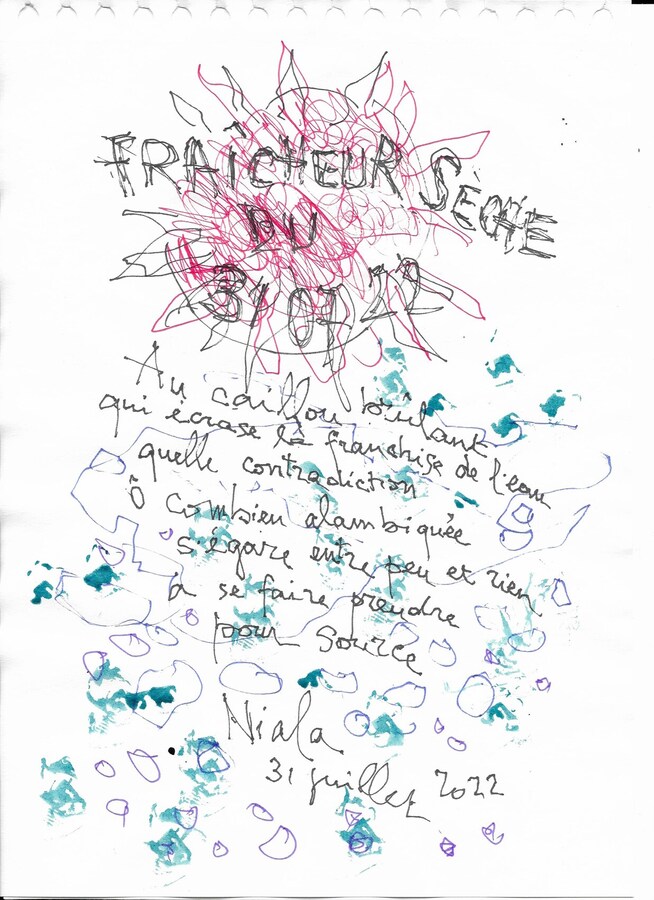 FRAÎCHEUR SECHE
DU
31/07 22
Au caillou brûlant
qui écrase la franchise de l'eau
quelle contradiction
ô combien alambiquée
s'égare entre peu et rien
à se faire prendre
pour source
Niala
31 juillet 2022